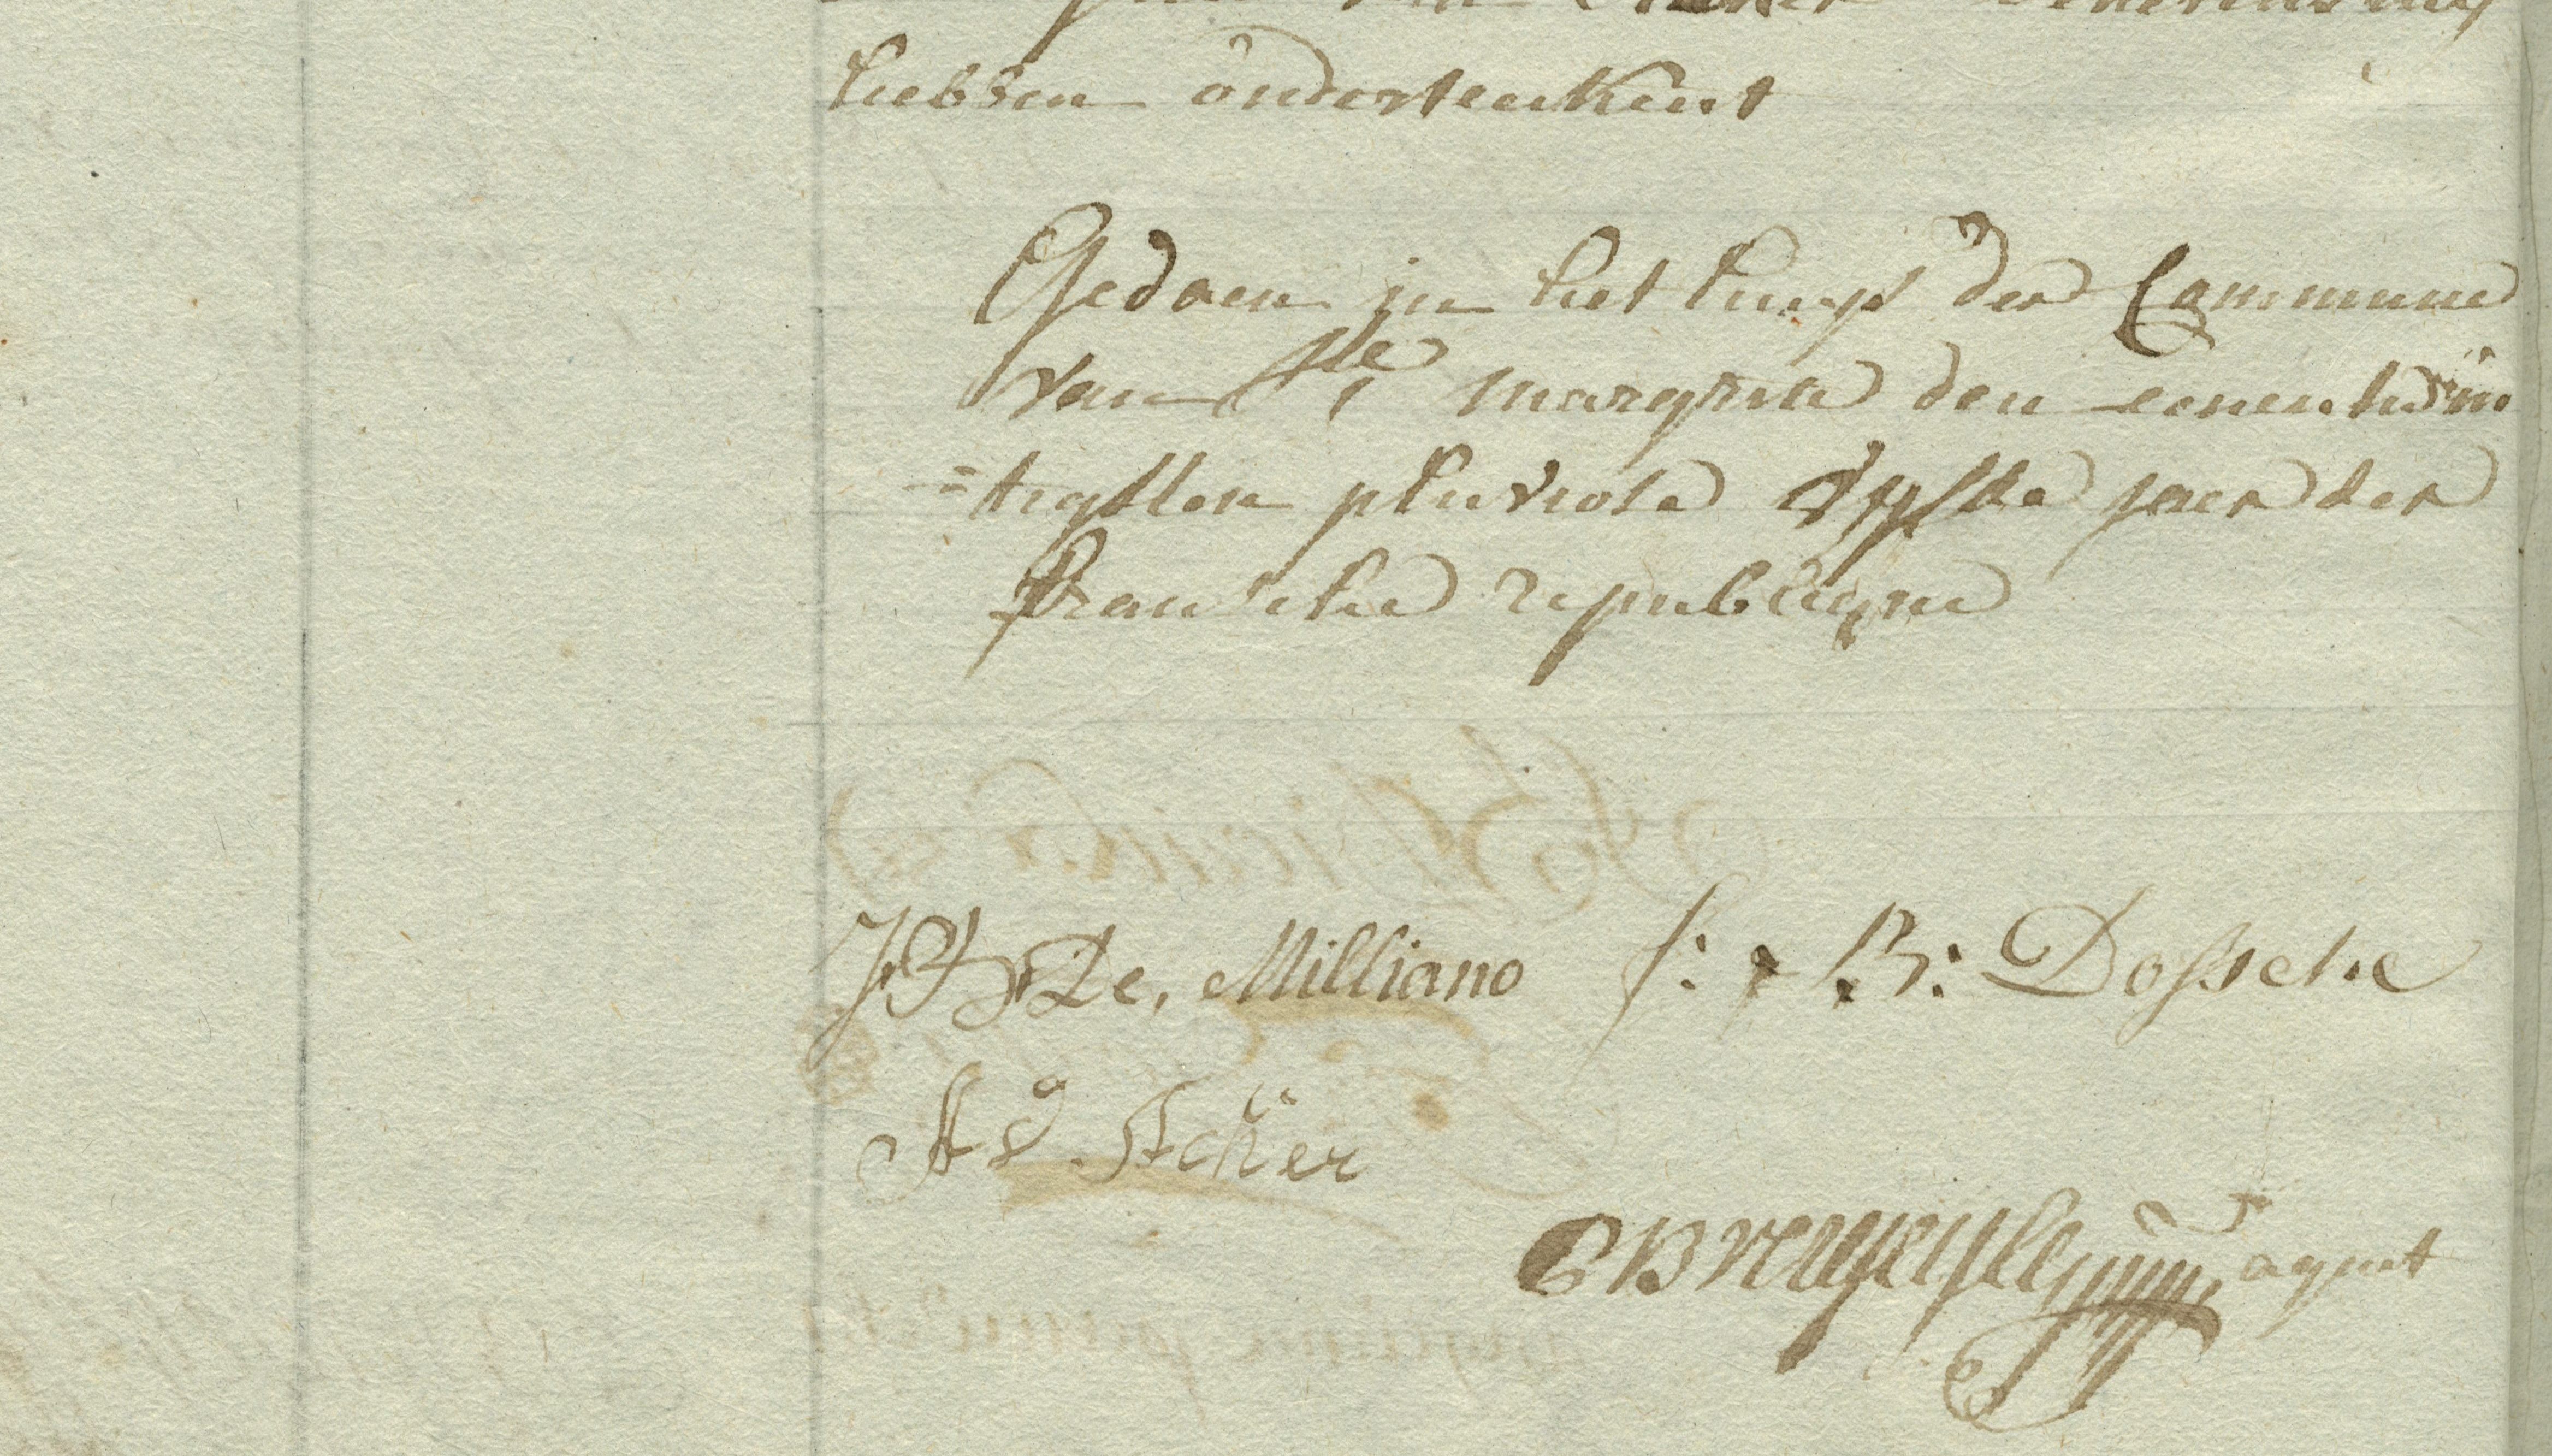 hebben onderteekent
Gedaen in het huys der Commune
van Ste margrita den eenentwin
=tigsten pluviose vyfde jaer der
fransche republique
J: B: De, Milliano f: B: Dossche
Ad. Acker
agent